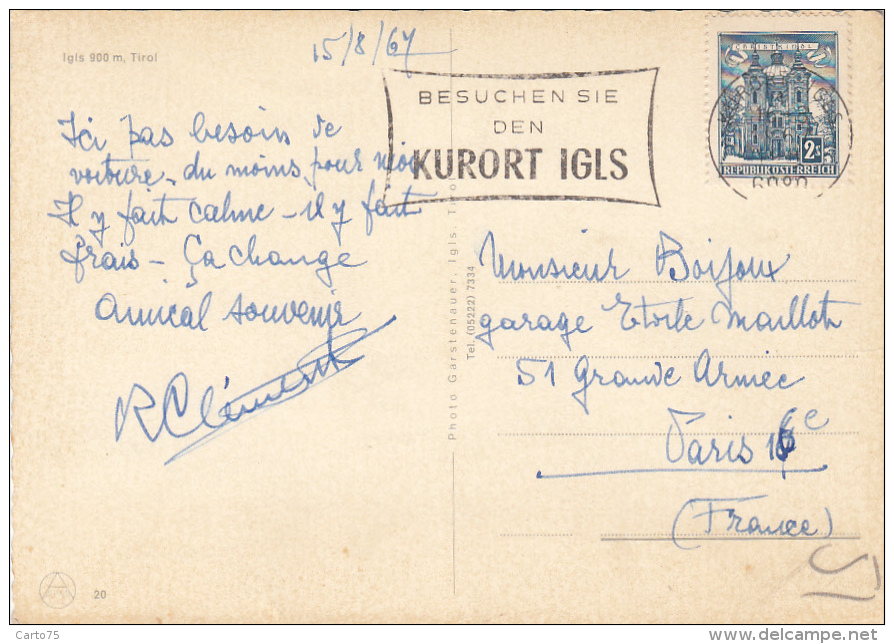 Igls 900 m, Tirol
15/8/67
Ici pas besoin de
voiture, du moins pour moi
Il y fait calme - il y fait
frais - Ça change
amical souvenir
R Clément
BESUCHEN SIE
DEN
KURORT IGLS
CHRISTKINDL
2S
REPUBLIK ÖSTERREICH
6080
Photo Garstenauer, Igls, Tirol
Tel. (05222) 7334
Monsieur Boijoux
garage Etoile Maillot
51 Grande Armée
Paris 16e
(France)
20
Carto75
delcampe.net